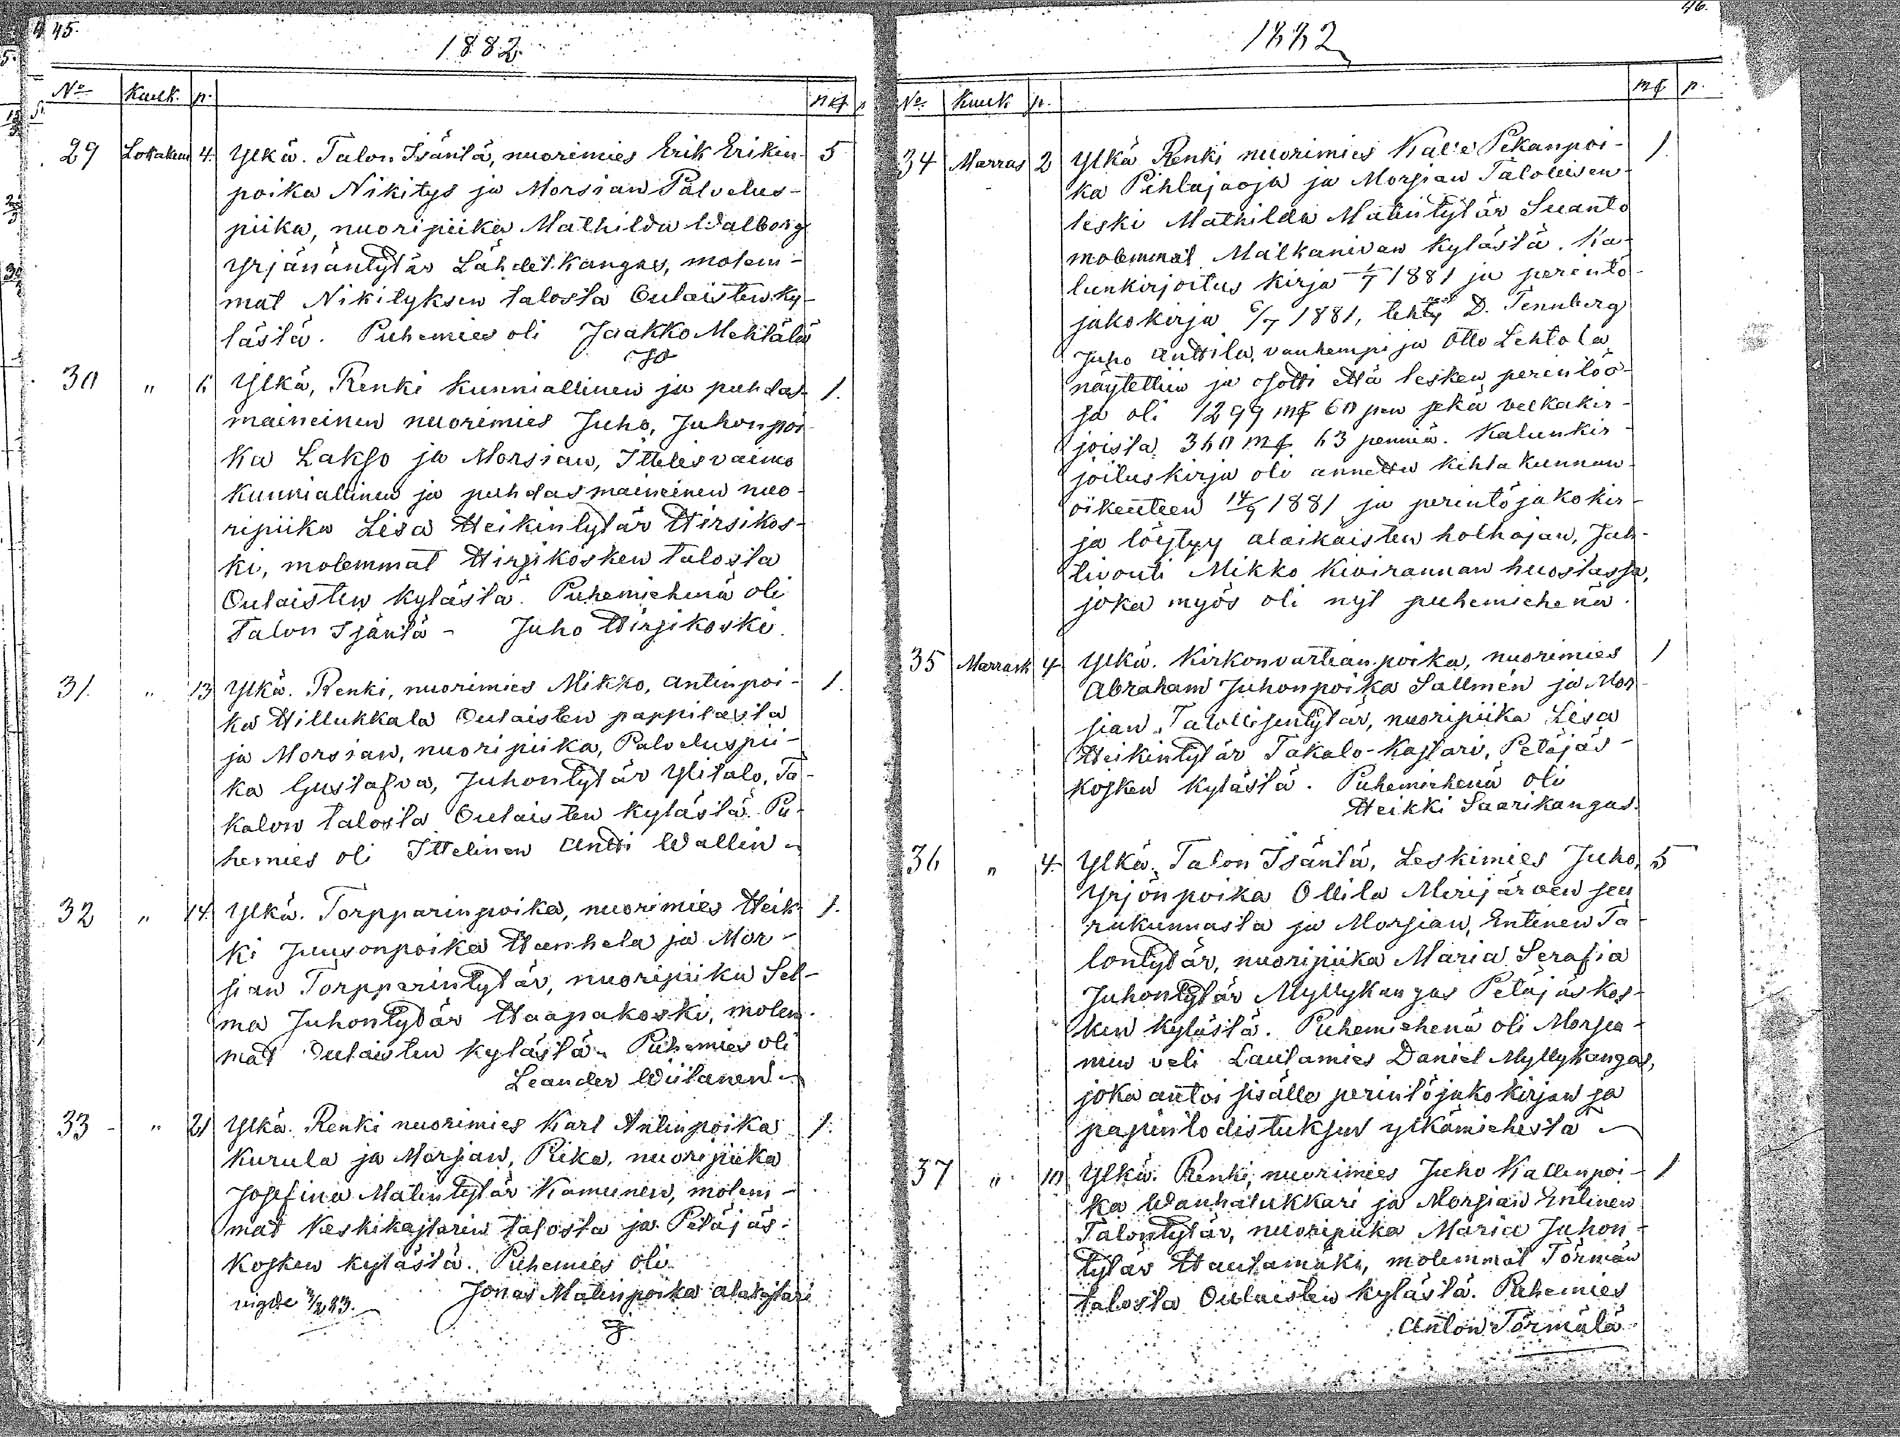 45.
1882
No Kuuk. p. mf p
29 Lokakuu 4. Ylkä. Talon Isäntä, nuorimies Erik Erikin- 5
poika Nikitys ja Morsian Palvelus-
piika, nuoripiika Mathilda Walborg
Yrjänäntytär Lähdetkangas, molem-
mat Nikityksen talosta Oulaisten ky-
lästä. Puhemies oli Jaakko Mehtälä
30 " 6 Ylkä, Renki kunniallinen ja puhdas- 1.
maineinen nuorimies Juho, Juhonpoi-
ka Lakso ja Morsian, Ittelisvaimo
kunniallinen ja puhdasmaineinen nuo-
ripiika Lisa Heikintytär Hirsikos-
ki, molemmat Hirsikosken talosta
Oulaisten kylästä. Puhemiehenä oli
Talon Isäntä - Juho Hirsikoski.
31. " 13 Ylkä. Renki, nuorimies Mikko, Antinpoi- 1.
ka Hillukkala Oulaisten pappilasta
ja Morsian, nuoripiika, Palveluspii-
ka Gustafva, Juhontytär Ylitalo, Ta-
kalon talosta Oulaisten kylästä. Pu-
hemies oli Ittelinen Antti Wallin
32 " 14. Ylkä. Torpparinpoika, nuorimies Heik- 1.
ki Juusonpoika Hanhela ja Mor-
sian Torpparintytär, nuoripiika Sel-
ma Juhontytär Haapakoski, molem-
mat Oulaisten kylästä. Puhemies oli
Leander Wiitanen
33 - " 21 Ylkä. Renki nuorimies Karl Antinpoika 1.
Kurula ja Morsian, Piika, nuoripiika
Josefina Matintytär Kamunen, molem-
mat Keskikastarin talosta ja Petäjäs-
kosken kylästä. Puhemies oli
Jonas Matinpoika Alakastari
46.
1882
No. Kuuk p. mf p.
34 Marras 2 Ylkä Renki nuorimies Kalle Pekanpoi- 1.
ka Pihlajaoja ja Morsian Talollisen
leski Mathilda Matintytär Suanto
molemmat Matkanivan kylästä. Ka-
lunkirjoitus kirja 1881 ja perintö-
jakokirja 6/7 1881, tehty D. Tennberg
Juho Anttila, vanhempi ja Otto Lehtola
näytettiin ja osotti että lesken perintöö-
sä oli 1299 mf 60 pen sekä velkakir-
joista 360 mf 63 penniä. Kalunkir-
joituskirja oli annettu kihlakunnan
oikeuteen 14/9 1881 ja perintöjakokir-
ja löytyy alaikäisten holhojan, Jah-
tivouti Mikko Kivirannan huostassa,
joka myös oli nyt puhemiehenä.
35 Marrask 4 Ylkä. Kirkonvartian poika, nuorimies 1
Abraham Juhonpoika Sallmén ja Mor-
sian, Talollisentytär, nuoripiika Lisa
Heikintytär Takalo-Kastari, Petäjäs-
kosken kylästä. Puhemiehenä oli
Heikki Saarikangas.
36 " 4. Ylkä. Talon Isäntä, Leskimies Juho, 5
Yrjönpoika Ollila Merijärven seu
rakunnasta ja Morsian, Entinen Ta-
lontytär, nuoripiika Maria Serafia
Juhontytär Myllykangas Petäjäskos-
ken kylästä. Puhemiehenä oli Morsia-
men veli Lautamies Daniel Myllykangas,
joka antoi sisälle perintöjakokirjan ja
papintodistuksen ylkämiehestä
37 " 10 Ylkä. Renki, nuorimies Juho Kallenpoi- 1
ka Wanhatukkari ja Morsian Entinen
Talontytär, nuoripiika Maria Juhon-
tytär Hautamäki, molemmat Törmän
talosta Oulaisten kylästä. Puhemies
Anton Törmälä